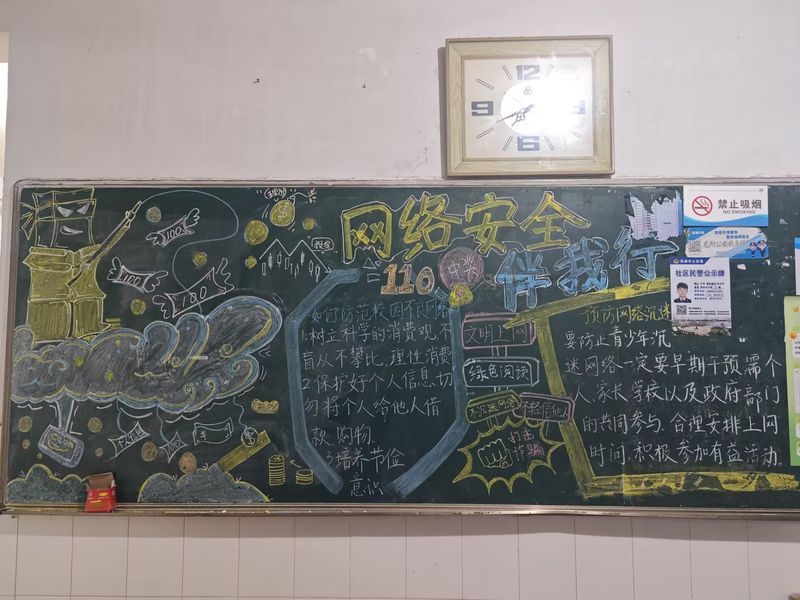 12
9
6
网络安全
伴我行
110
中奖
禁止吸烟
NO SMOKING
社区民警公示牌
100
100
100
如何防范校园不良网络
1.树立科学的消费观,不
盲从不攀比,理性消费
2.保护好个人信息,切
勿将个人给他人借
款,购物.
3.培养节俭
意识
文明上网
绿色阅读
不沉迷网络
不轻信他人
打击
诈骗
预防网络沉迷
要防止青少年沉
迷网络一定要早期干预,需个
人,家长,学校以及政府部门
的共同参与.合理安排上网
时间,积极参加有益活动.